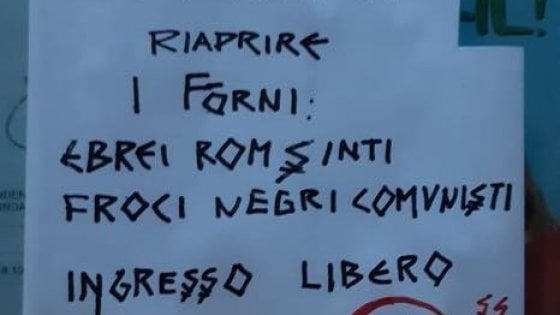 RIAPRIRE
I FORNI:
EBREI ROM SINTI
FROCI NEGRI COMVNISTI
INGRESSO LIBERO
SS